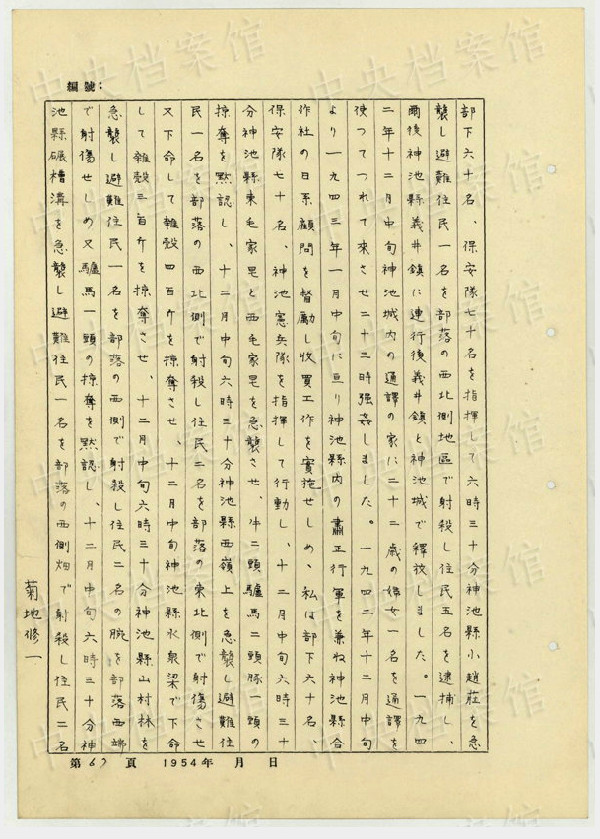 編號：
部下六十名、保安隊七十名を指揮して六時三十分神池縣小趙莊を急
襲し避難住民一名を部落の西北側地區で射殺し住民五名を逮捕し、
爾後神池縣義井鎮に連行後義井鎮と神池城で釋放しました。一九四
二年十二月中旬神池城内の通譯の家に二十二歳の婦女一名を通譯を
使つてつれて來させ二十三時强姦しました。一九四二年十二月中旬
より一九四三年一月中旬に亘り神池縣内の肅正行軍を兼ね神池縣合
作社の日系顧問を督勵し收買工作を實施せしめ、私は部下六十名、
保安隊七十名、神池憲兵隊を指揮して行動し、十二月中旬六時三十
分神池縣東毛家皂と西毛家皂を急襲させ、牛二頭驢馬二頭豚一頭の
掠奪を黙認し、十二月中旬六時三十分神池縣西嶺上を急襲し避難住
民一名を部落の西北側で射殺し住民二名を部落の東北側で射傷させ
又下命して雜穀四百斤を掠奪させ、十二月中旬神池縣水泉梁で下命
して雜穀三百斤を掠奪させ、十二月中旬六時三十分神池縣山村林を
急襲し避難住民一名を部落の西側で射殺し住民二名の腕を部落西端
で射傷せしめ又驢馬一頭の掠奪を黙認し、十二月中旬六時三十分神
池縣碾槽溝を急襲し避難住民一名を部落の西側畑で射殺し住民二名
菊地修一
第67頁 1954年 月 日
中央档案馆